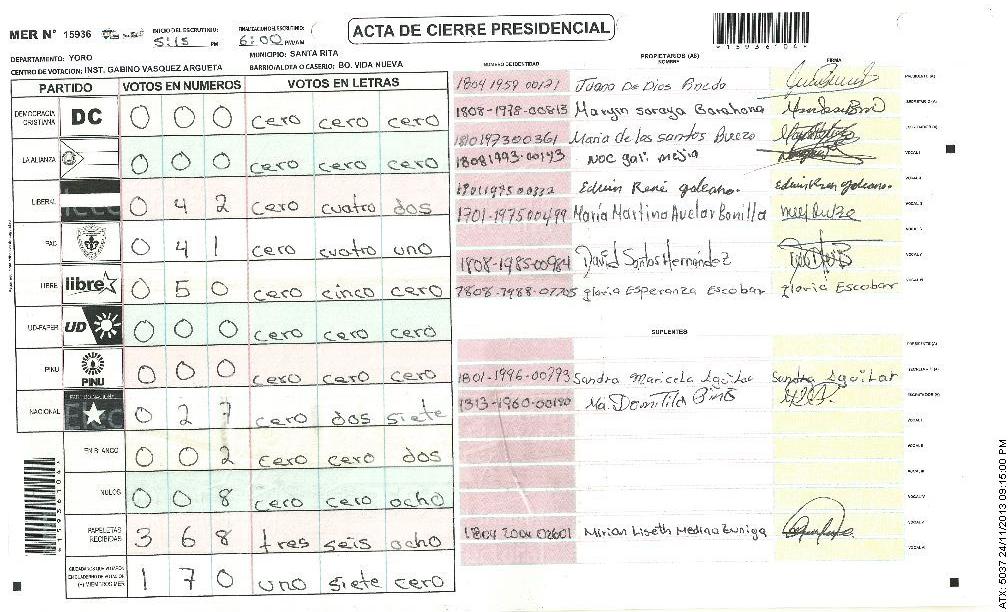 ACTA DE CIERRE PRESIDENCIAL
MER N° 15936
INICIO DEL ESCRUTINIO: 5:15 PM
FINALIZACION DEL ESCRUTINIO: 6:00 PM/AM
*15936104*
DEPARTAMENTO: YORO
MUNICIPIO: SANTA RITA
CENTRO DE VOTACION: INST. GABINO VASQUEZ ARGUETA
BARRIO/ALDEA O CASERIO: BO. VIDA NUEVA
PARTIDO VOTOS EN NUMEROS VOTOS EN LETRAS
DEMOCRACIA CRISTIANA DC 0 0 0 cero cero cero
LA ALIANZA 0 0 0 cero cero cero
LIBERAL 0 4 2 cero cuatro dos
PAC 0 4 1 cero cuatro uno
LIBRE libre 0 5 0 cero cinco cero
UD-FAPER UD 0 0 0 cero cero cero
PINU PINU 0 0 0 cero cero cero
NACIONAL 0 2 7 cero dos siete
EN BLANCO 0 0 2 cero cero dos
NULOS 0 0 8 cero cero ocho
PAPELETAS RECIBIDAS 3 6 8 tres seis ocho
1 7 0 uno siete cero
NUMERO DE IDENTIDAD
PROPIETARIOS (AS)
NOMBRE
FIRMA
1804 1959 00121 Juana De Dios PRESIDENTE (A)
1808-1978-00813 Maryin Soraya Barahona SECRETARIO (A)
1810197300361 Maria de los santos ESCRUTADOR (A)
18081993-00193 mejia VOCAL I
Edwin René galeano. Edwin Rene galeano. VOCAL II
1701-197500499 María Martina Avelar Bonilla VOCAL III
VOCAL IV
1808-1985-00984 David Santos Hernández VOCAL V
gloria Esperanza Escobar gloria Escobar VOCAL VI
SUPLENTES
PRESIDENTE (A)
1801-1996-00793 Sandra Maricela Aguilar Sandra Aguilar SECRETARIO (A)
1313-1960-00190 Ma. Domitila ESCRUTADOR (A)
VOCAL I
VOCAL II
VOCAL III
VOCAL IV
1804 2004 02601 Mirian Liseth Medina Zuniga VOCAL V
VOCAL VI
*15936104*
ATX: 5037 24/11/2013 09:15:00 PM